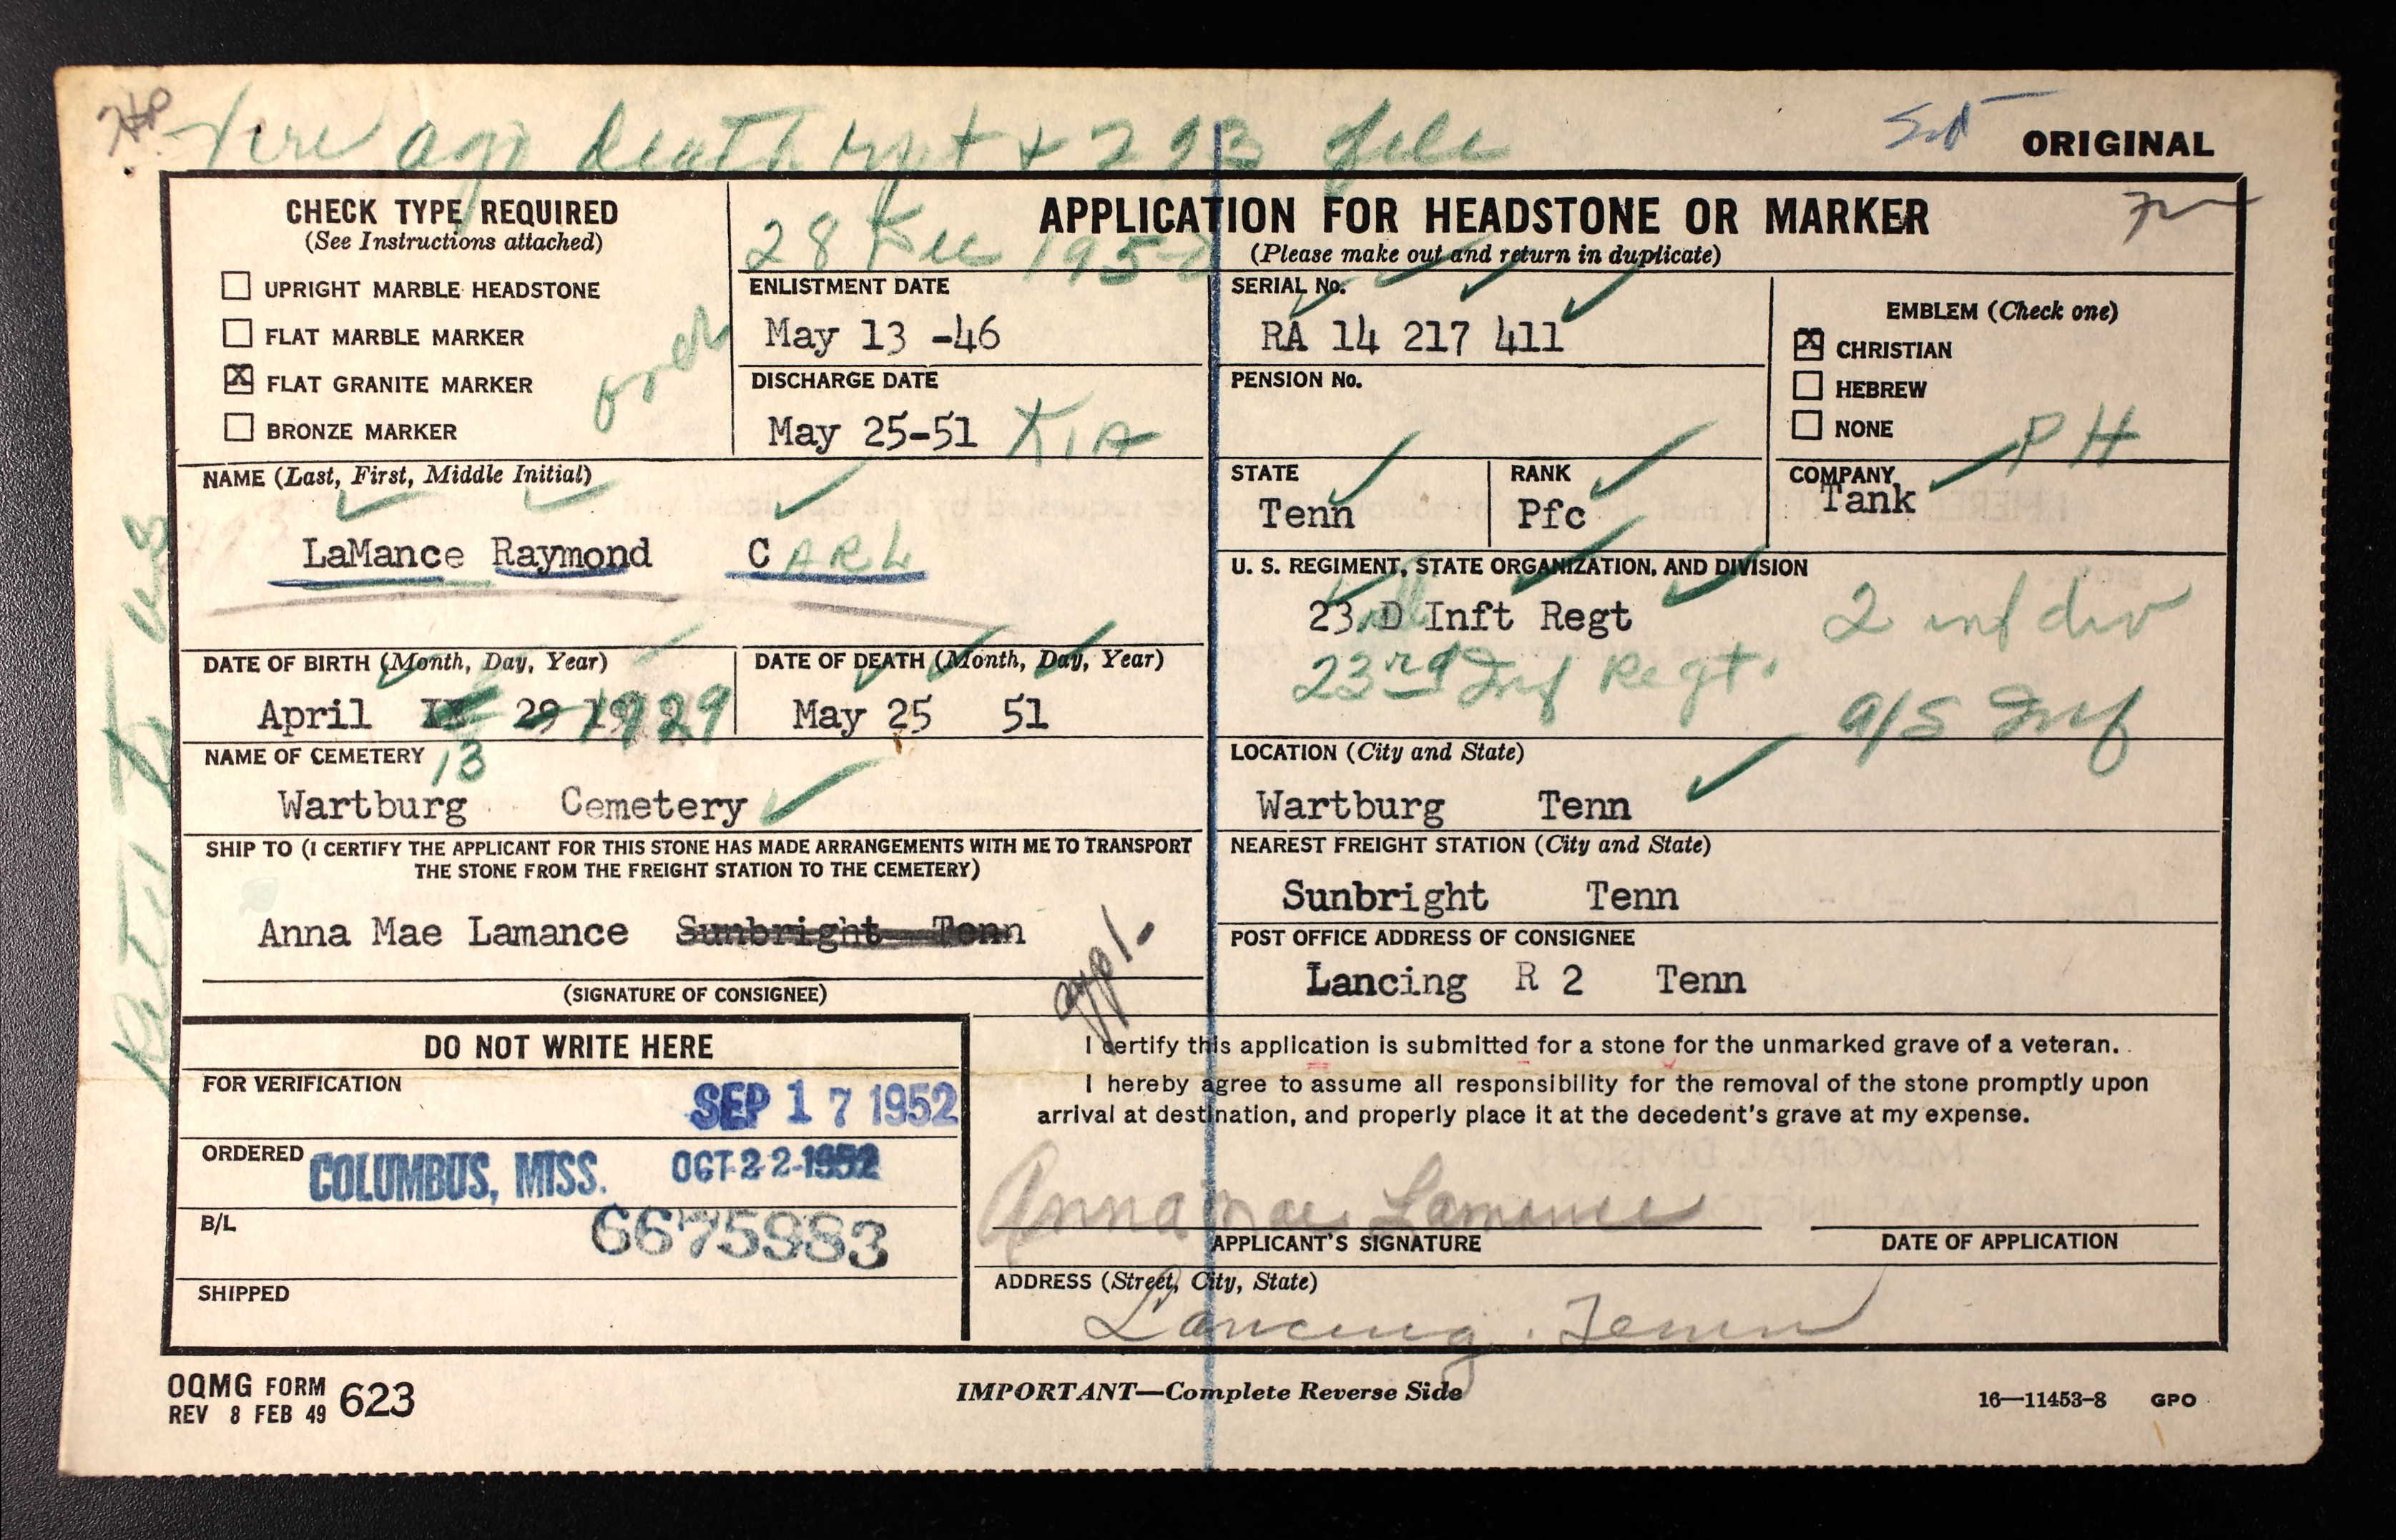 Veri ago death rpt + 293 file
ORIGINAL
CHECK TYPE REQUIRED
(See Instructions attached)
☐ UPRIGHT MARBLE HEADSTONE
☐ FLAT MARBLE MARKER
☒ FLAT GRANITE MARKER
☐ BRONZE MARKER
APPLICATION FOR HEADSTONE OR MARKER
(Please make out and return in duplicate)
28 Dec 1950
ENLISTMENT DATE
May 13 -46
SERIAL No.
RA 14 217 411
EMBLEM (Check one)
☒ CHRISTIAN
☐ HEBREW
☐ NONE
DISCHARGE DATE
May 25-51 KIA
PENSION No.
PH
NAME (Last, First, Middle Initial)
LaMance Raymond C ARL
STATE
Tenn
RANK
Pfc
COMPANY
Tank
U. S. REGIMENT, STATE ORGANIZATION, AND DIVISION
23 D Inft Regt 2 inf div
23rd Inf Regt.
a/s Inf
DATE OF BIRTH (Month, Day, Year)
April 29 1929
13
DATE OF DEATH (Month, Day, Year)
May 25 51
NAME OF CEMETERY
Wartburg Cemetery
LOCATION (City and State)
Wartburg Tenn
SHIP TO (I CERTIFY THE APPLICANT FOR THIS STONE HAS MADE ARRANGEMENTS WITH ME TO TRANSPORT
THE STONE FROM THE FREIGHT STATION TO THE CEMETERY)
Anna Mae Lamance Sunbright Tenn
(SIGNATURE OF CONSIGNEE)
NEAREST FREIGHT STATION (City and State)
Sunbright Tenn
POST OFFICE ADDRESS OF CONSIGNEE
Lancing R 2 Tenn
appl.
DO NOT WRITE HERE
FOR VERIFICATION
SEP 17 1952
ORDERED
COLUMBUS, MISS. OCT 22 1952
B/L
6675983
SHIPPED
I certify this application is submitted for a stone for the unmarked grave of a veteran.
I hereby agree to assume all responsibility for the removal of the stone promptly upon
arrival at destination, and properly place it at the decedent's grave at my expense.
Anna Mae Lamance
APPLICANT'S SIGNATURE
DATE OF APPLICATION
ADDRESS (Street, City, State)
Lancing. Tenn
OQMG FORM 623
REV 8 FEB 49
IMPORTANT—Complete Reverse Side
16—11453-8 GPO